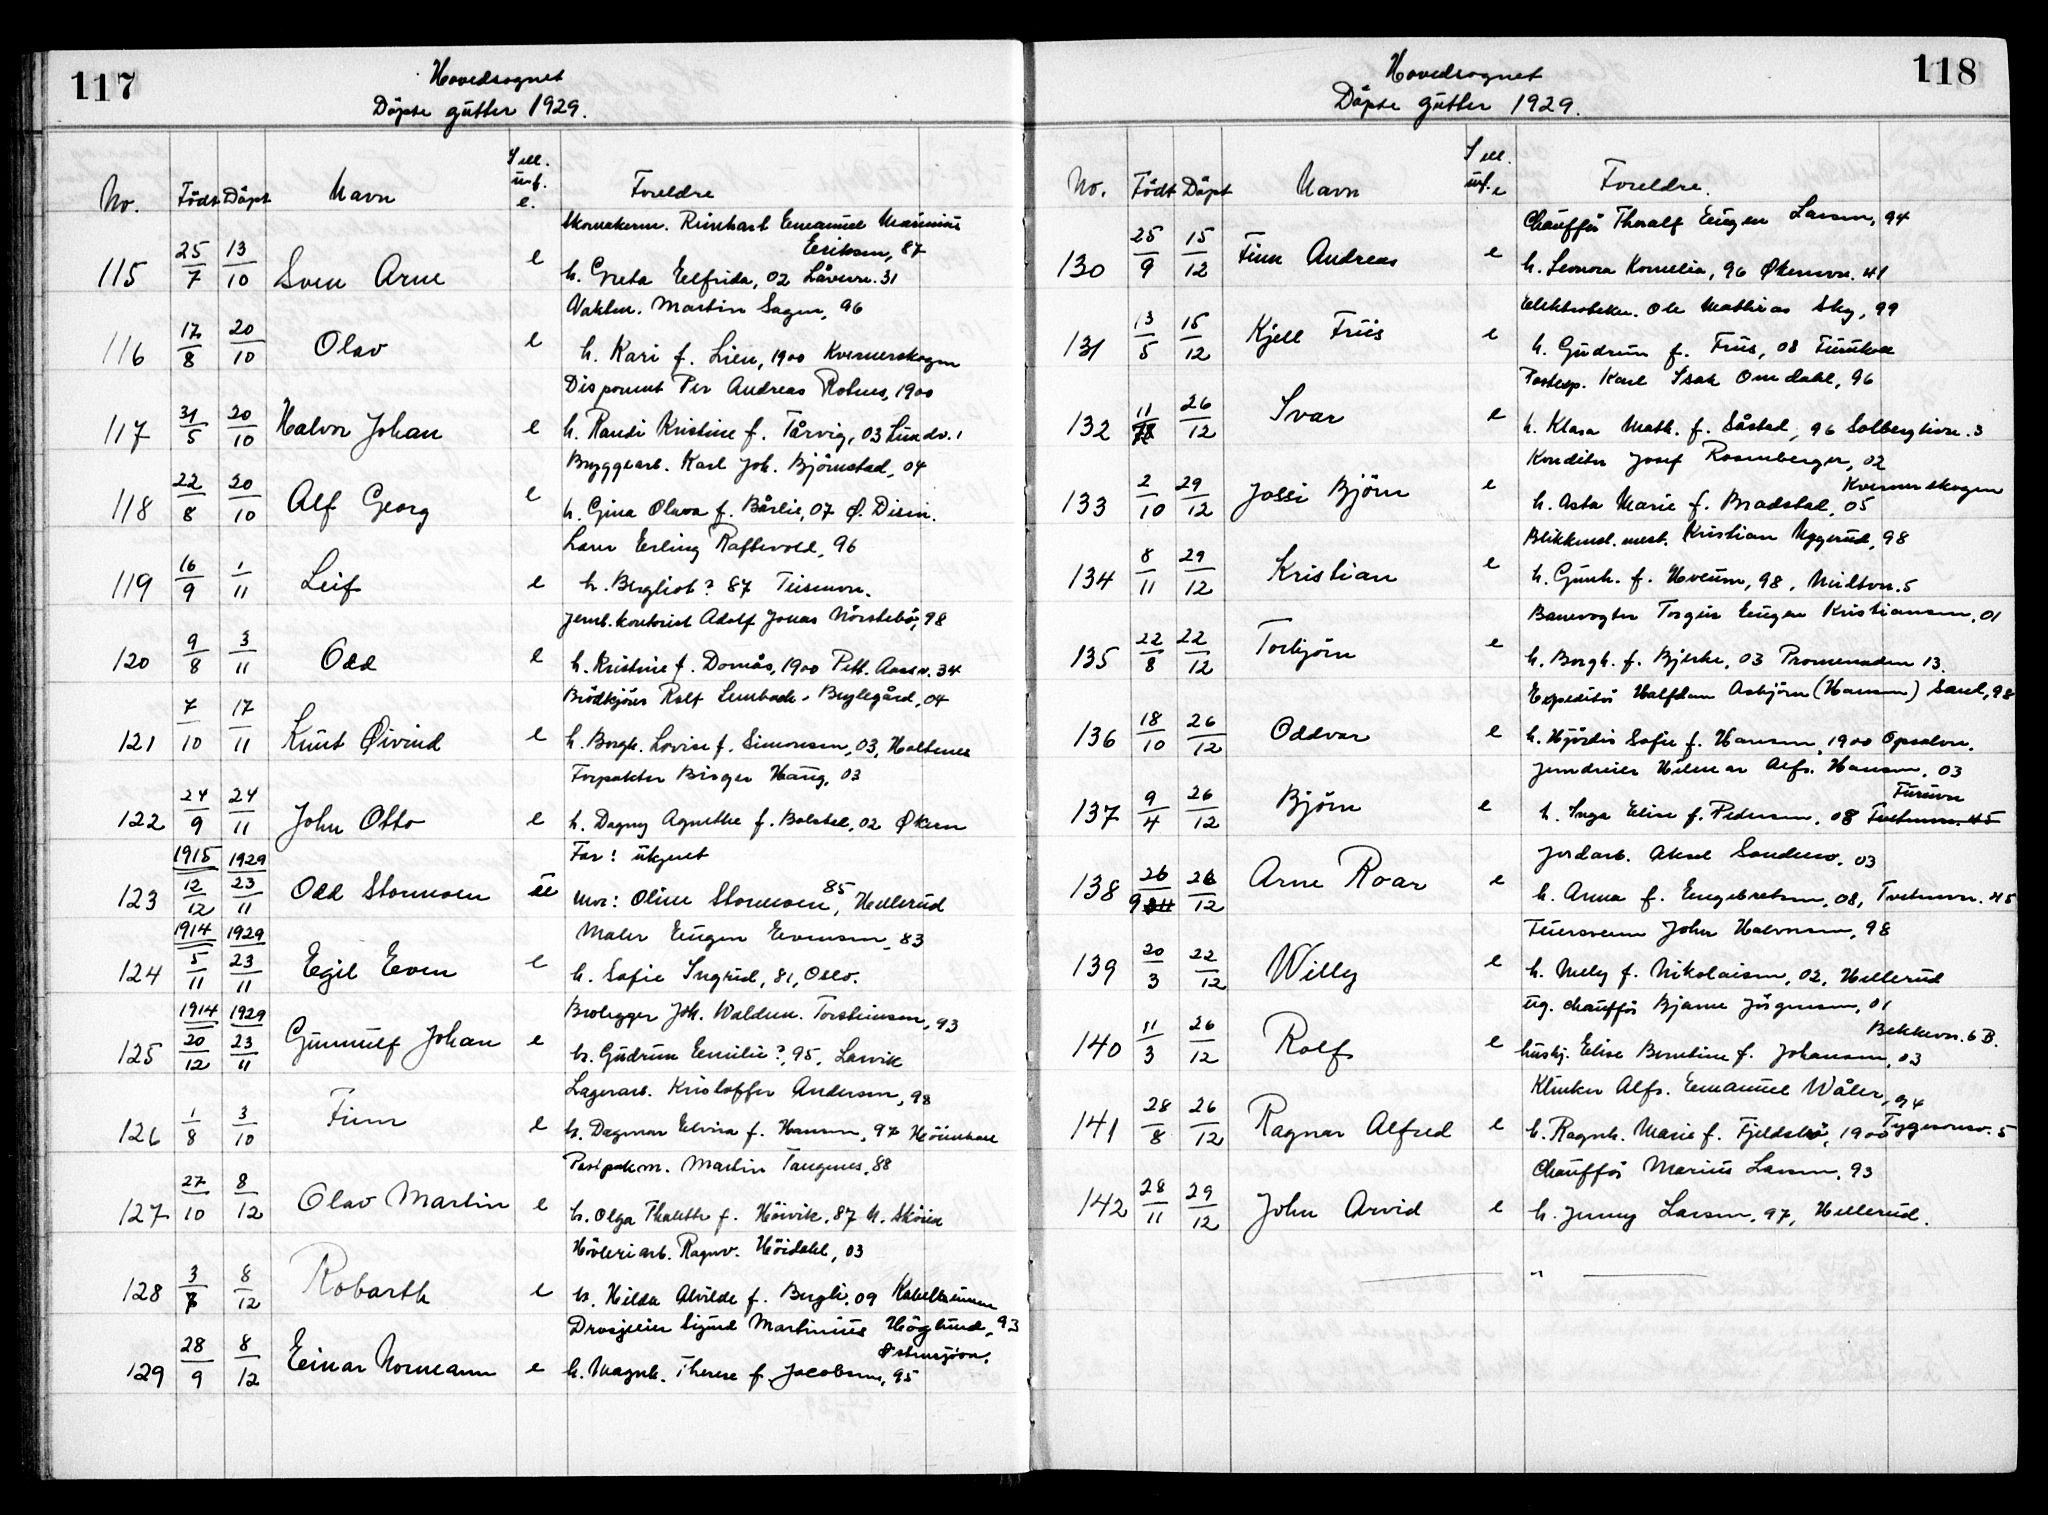 117
Hovedsognet
Döpte gutter 1929.
No. Födt Döpt Navn I ell. u.f. e. Foreldre
Skomakerm. Reinhart Emanuel Marinius
Eriksen, 87
115 25/7 13/10 Sven Arne e h. Greta Elfrida, 02 Låvenv. 31
Vaktm. Martin Sagen, 96
116 17/8 20/10 Olav e h. Kari f. Lien, 1900 Kvernerskogen
Disponent Per Andreas Rotnes, 1900
117 31/5 20/10 Halvor Johan e h. Randi Kristine f. Tårvig, 03 Lundv. 1
Bryggearb. Karl Joh. Björnstad, 04
118 22/8 20/10 Alf Georg e h. Gina Olava f. Bårlie, 07 Ö. Disen.
Lærer Erling Raftevold, 96
119 16/9 1/11 Leif e h. Bergliot? 87 Teisenvn.
Jernb. kontorist Adolf Jonas Nörstebö, 98
120 9/8 3/11 Odd e h. Kristine f. Domås, 1900 Pett. Aasev. 34
Brödkjörer Rolf Lembach-Beylegård, 04
121 7/10 17/11 Knut Øivind e h. Borgh. Lovise f. Simonsen, 03, Holtenes
Forpakter Birger Haug, 03
122 24/9 24/11 John Otto e h. Dagny Agnethe f. Bolstad, 02 Økern
1915 1929 Far: ukjent
123 12/12 23/11 Odd Stormoen ue Mor: Oline Stormoen, 85, Hellerud
1914 1929 Maler Eugen Evensen, 83
124 5/11 23/11 Egil Even e h. Sofie Ingrid, 81, Oslo.
1914 1929 Brolegger Joh. Waldem. Torsteinsen, 93
125 20/12 23/11 Gunnulf Johan e h. Gudrun Emilie?, 95, Larvik
Lagerarb. Kristoffer Andersen, 98
126 1/8 3/10 Finn e h. Dagmar Elvira f. Hansen, 97 Höienhall
Postpakm. Martin Tangenes, 88
127 27/10 8/12 Olav Martin e h. Olga Thalette f. Höivik, 87 N. Sköien
Hövleriarb. Ragnv. Höidahl, 03
128 3/7 8/12 Robarth e h. Hilda Alvilde f. Bergli, 09
Drosjeeier Sigurd Martinius Höglund, 93
Østensjövn.
129 28/9 8/12 Einar Normann e h. Magnh. Therese f. Jacobsen, 95
118
Hovedsognet
Döpte gutter 1929.
No. Födt Döpt Navn I ell. u.f. e Foreldre.
Chaufför Thoralf Eugen Larsen, 94
130 25/9 15/12 Finn Andreas e h. Leonora Kornelia, 96 Økernvn. 41
Elektrotekn. Ole Mathias Sky, 99
131 13/5 15/12 Kjell Friis e h. Gudrun f. Friis, 08
Posteksp. Karl Isak Omdahl, 96
132 11/ 26/12 Ivar e h. Klara Math. f. Såstad, 96 Solberglivn. 3
Konditor Josef Rosenberger, 02
Kvernerskogen
133 2/10 29/12 Jossi Björn e h. Asta Marie f. Bradstad, 05
Blikkensl. mest. Kristian Uggerud, 98
134 8/11 29/12 Kristian e h. Gunh. f. Hveum, 98, Midtvn. 5
Banevogter Torgeir Eugen Kristiansen, 01
135 22/8 22/12 Torbjörn e h. Borgh. f. Bjerke, 03 Promenaden 13.
Expeditör Halfdan Asbjörn (Hansen) Sand, 98
136 18/10 26/12 Oddvar e h. Hjördis Sofie f. Hansen, 1900 Opsalvn.
Jerndreier Hilmar Alfr. Hansen, 03
Furuvn
137 9/4 26/12 Björn e h. Inga Elise f. Pedersen, 08 Tvetenvn. 45
Jordarb. Aksel Sandersv. 03
138 26/9 26/12 Arne Roar e h. Anna f. Engebretsen, 08, Tvetenvn. 45
Tjuersvenn John Halvorsen, 98
139 20/3 22/12 Willy e h. Melly f. Nikolaisen, 02, Hellerud
ug. chaufför Bjarne Jörgensen, 01
Bekkevn. 6 B.
140 11/3 26/12 Rolf e husbj. Elise Berntine f. Johansen, 03
Klinker Alfr. Emanuel Wåler, 94
141 28/8 26/12 Ragnar Alfred e h. Ragnh. Marie f. Fjeldsbö, 1900 Tygesonsv. 5
Chaufför Marius Larsen, 93
142 28/11 29/12 John Arvid e h. Jenny Larsen, 97, Hellerud.